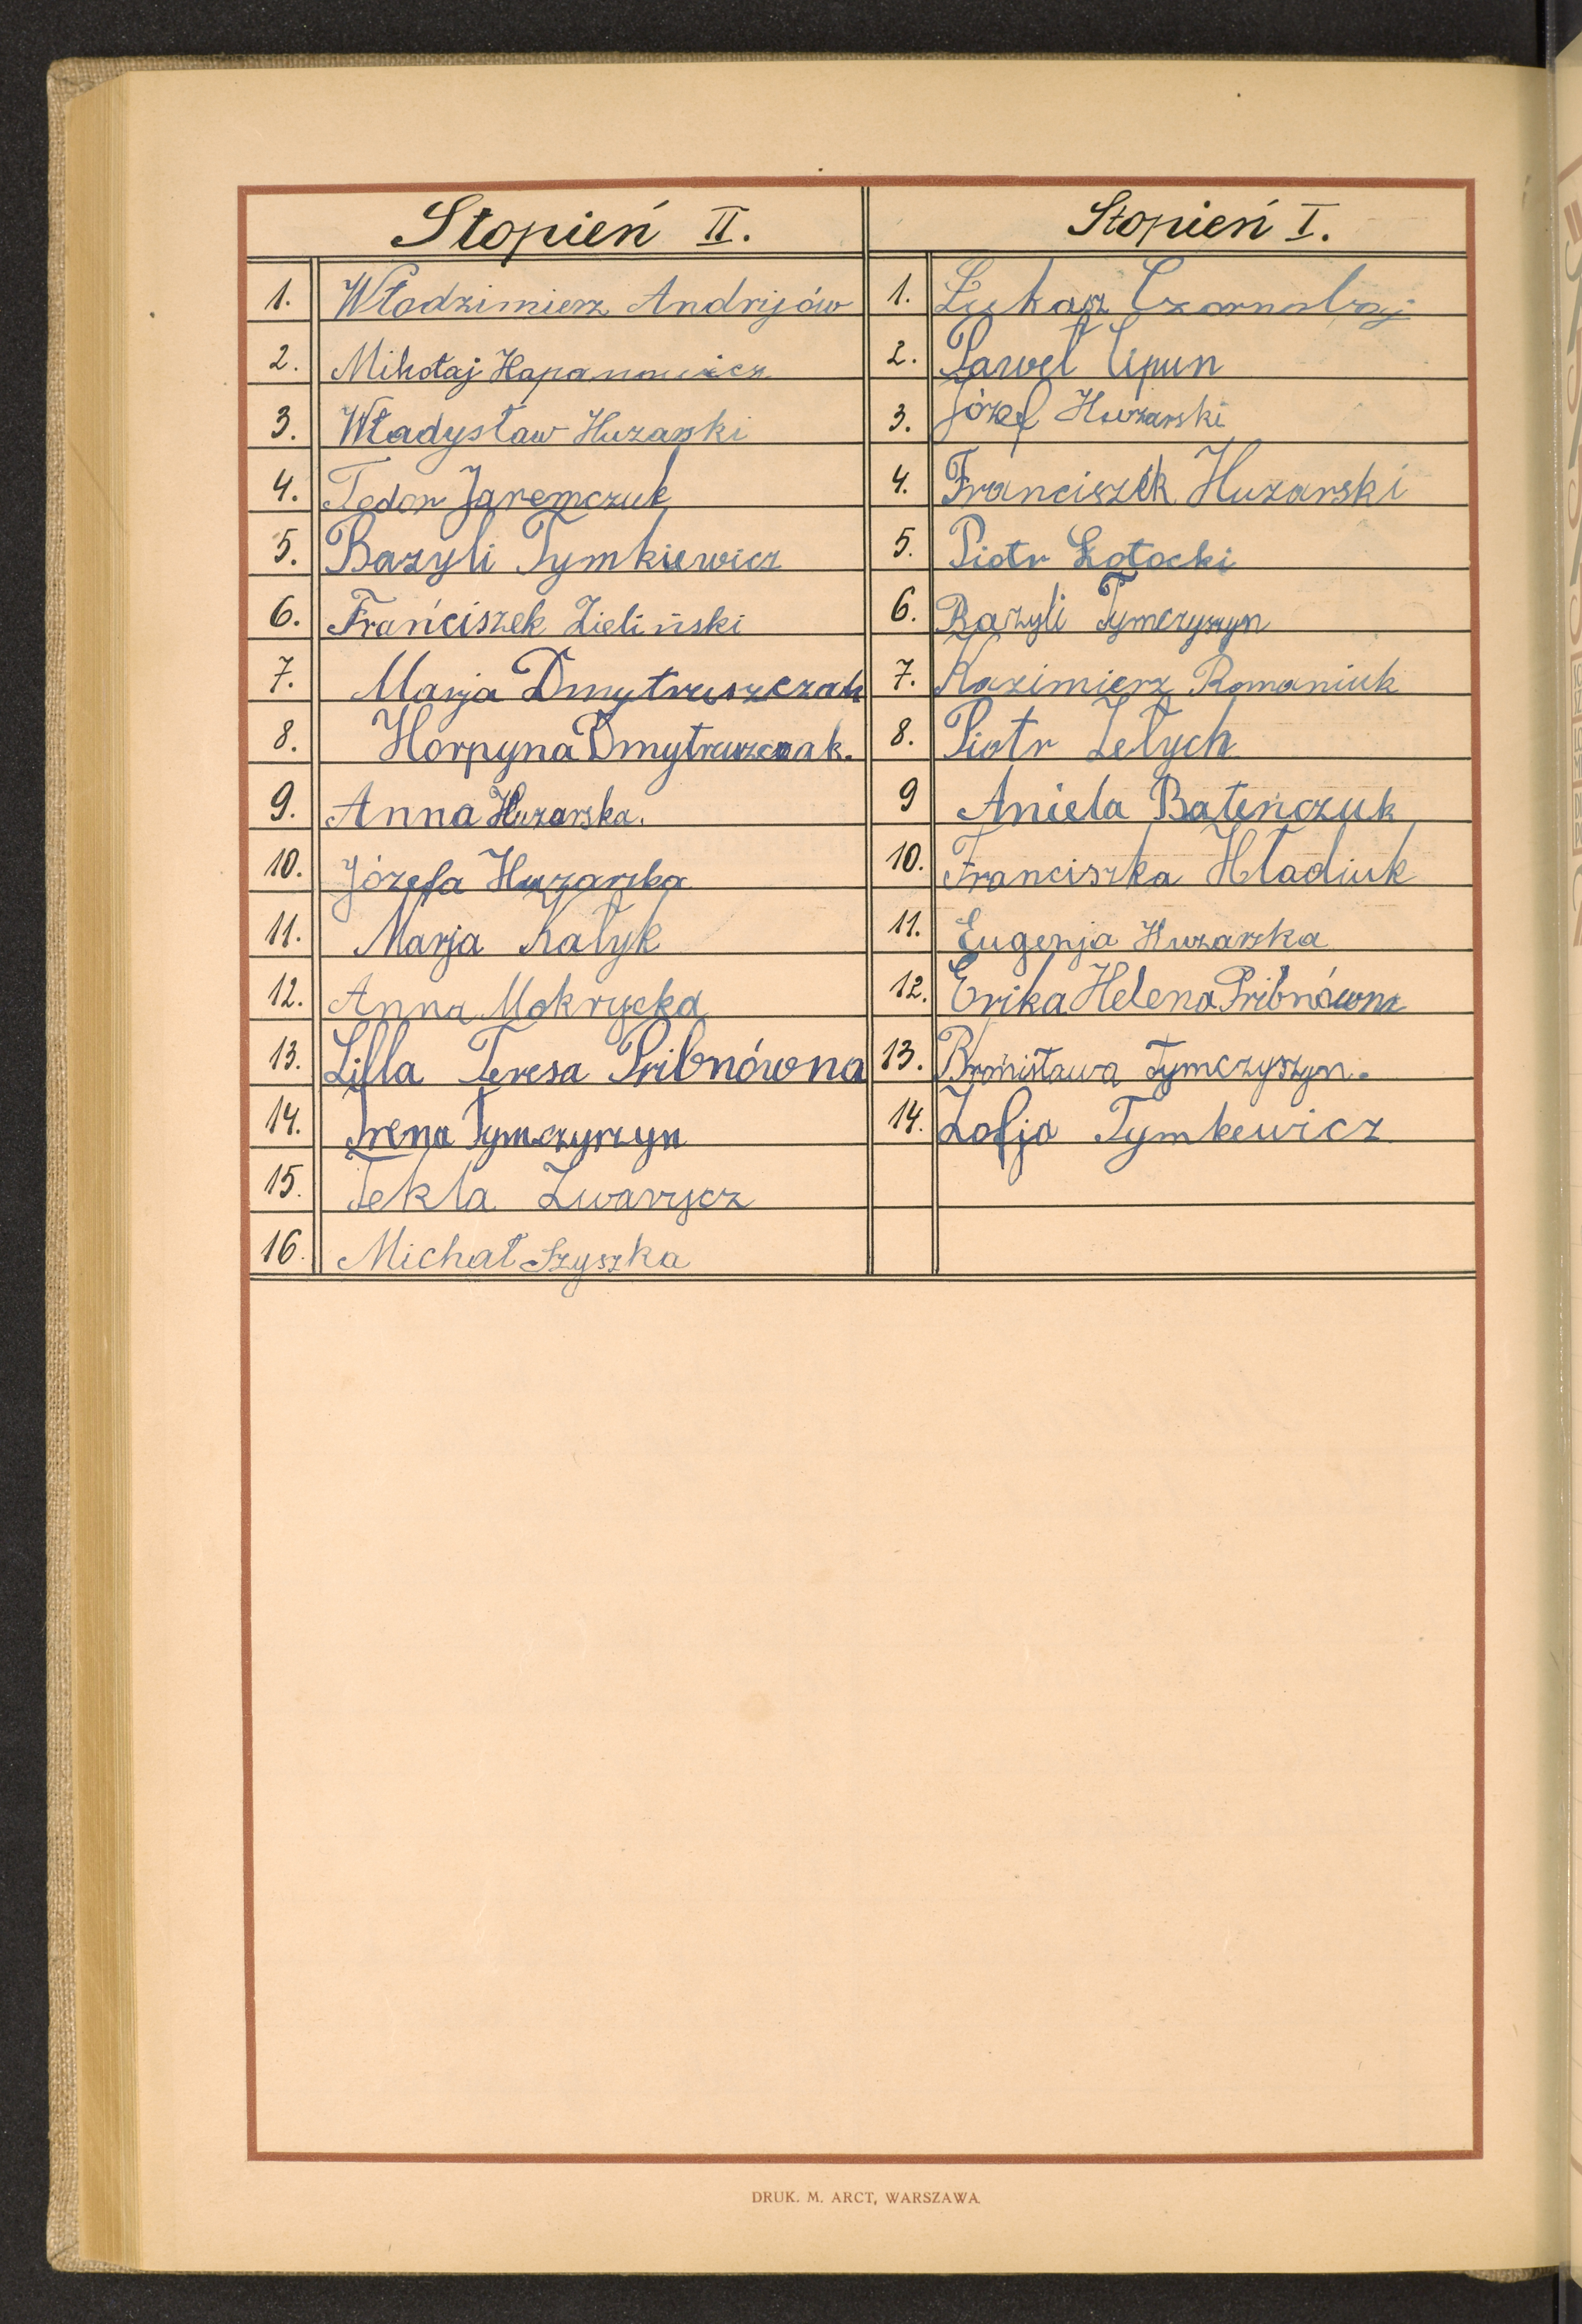 Stopień II.
1. Włodzimierz Andrijów
2. Mikołaj Hapanowicz
3. Władysław Huzarski
4. Todor Jaremczuk
5. Bazyli Tymkiewicz
6. Frańciszek Zieliński
7. Marja Dmytruszczak
8. Horpyna Dmytruszczak.
9. Anna Huzarska.
10. Józefa Huzarska
11. Marja Kałyk
12. Anna Mokrycka
13. Lilla Teresa Pribnówna
14. Irena Tymczyszyn
15. Tekla Zwarycz
16. Michał Szyszka
Stopień I.
1. Łukasz
2. Paweł Cipun
3. Józef Huzarski
4. Franciszek Huzarski
5. Piotr Łotocki
6. Bazyli Tymczyszyn
7. Kazimierz Romaniuk
8. Piotr Zełych
9 Aniela Bateńczuk
10. Franciszka Hładiuk
11. Eugenja Huzarska
12. Erika Helena Pribnówna
13. Bronisława Tymczyszyn.
14. Zofja Tymkewicz
DRUK. M. ARCT, WARSZAWA